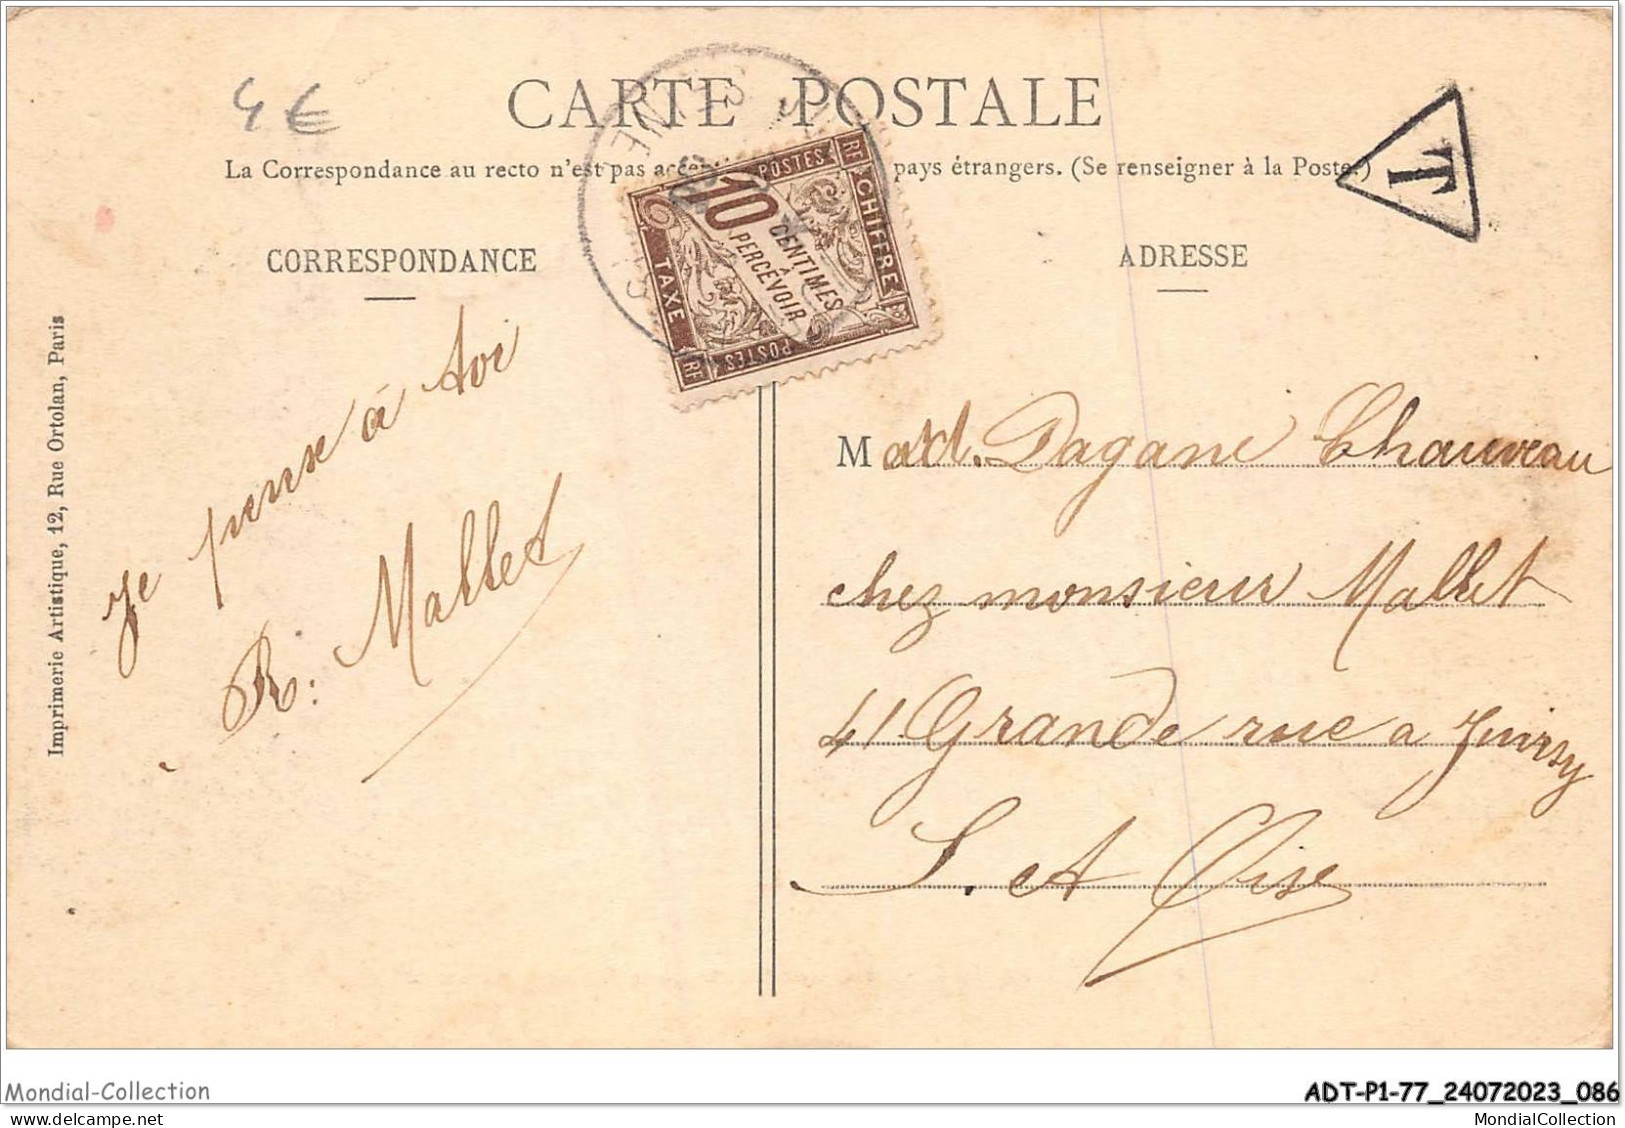 4 €
CARTE POSTALE
La Correspondance au recto n'est pas pays étrangers. (Se renseigner à la Poste.)
T
CORRESPONDANCE
ADRESSE
RF POSTES
CHIFFRE
10 CENTIMES
A
PERCEVOIR
TAXE
RF POSTES
Je pense à toi
R. Mallet
Mad. Dagane Chauveau
chez monsieur Mallet
41 Grande rue a Juvisy
S. et Oise
Imprimerie Artistique, 12, Rue Ortolan, Paris
Mondial-Collection
ADT-P1-77_24072023_086
www.delcampe.net
MondialCollection